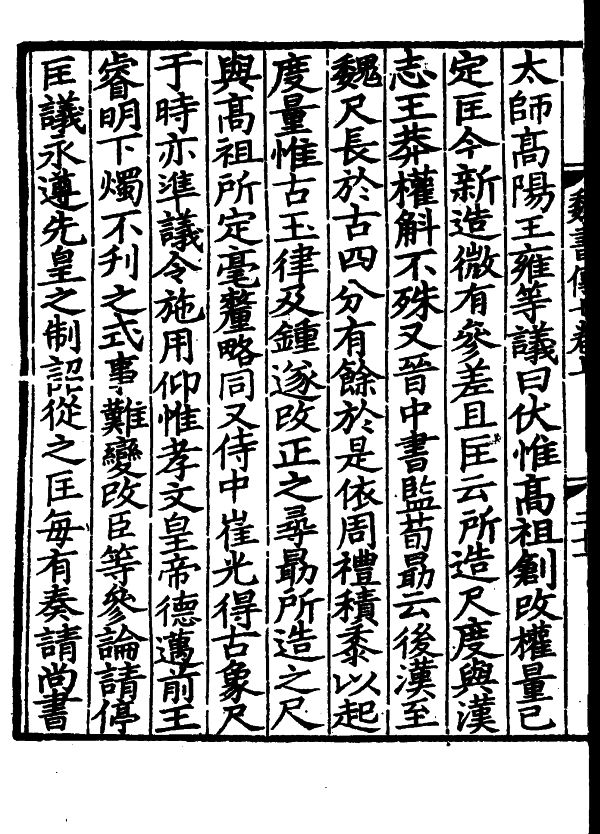 太師髙陽王雍等議曰伏惟髙祖創改權量已
定匡今新造微有參差且匡云所造尺度與漢
志王莽權斛不殊又晉中書監荀勗云後漢至
魏尺長於古四分有餘於是依周禮積黍以起
度量惟古玉律及鍾遂改正之尋勗所造之尺
與髙祖所定毫釐略同又侍中崔光得古象尺
于時亦準議令施用仰惟孝文皇帝德邁前王
睿明下燭不刋之式事難變改臣等參論請停
匡議永遵先皇之制詔從之匡每有奏請尚書